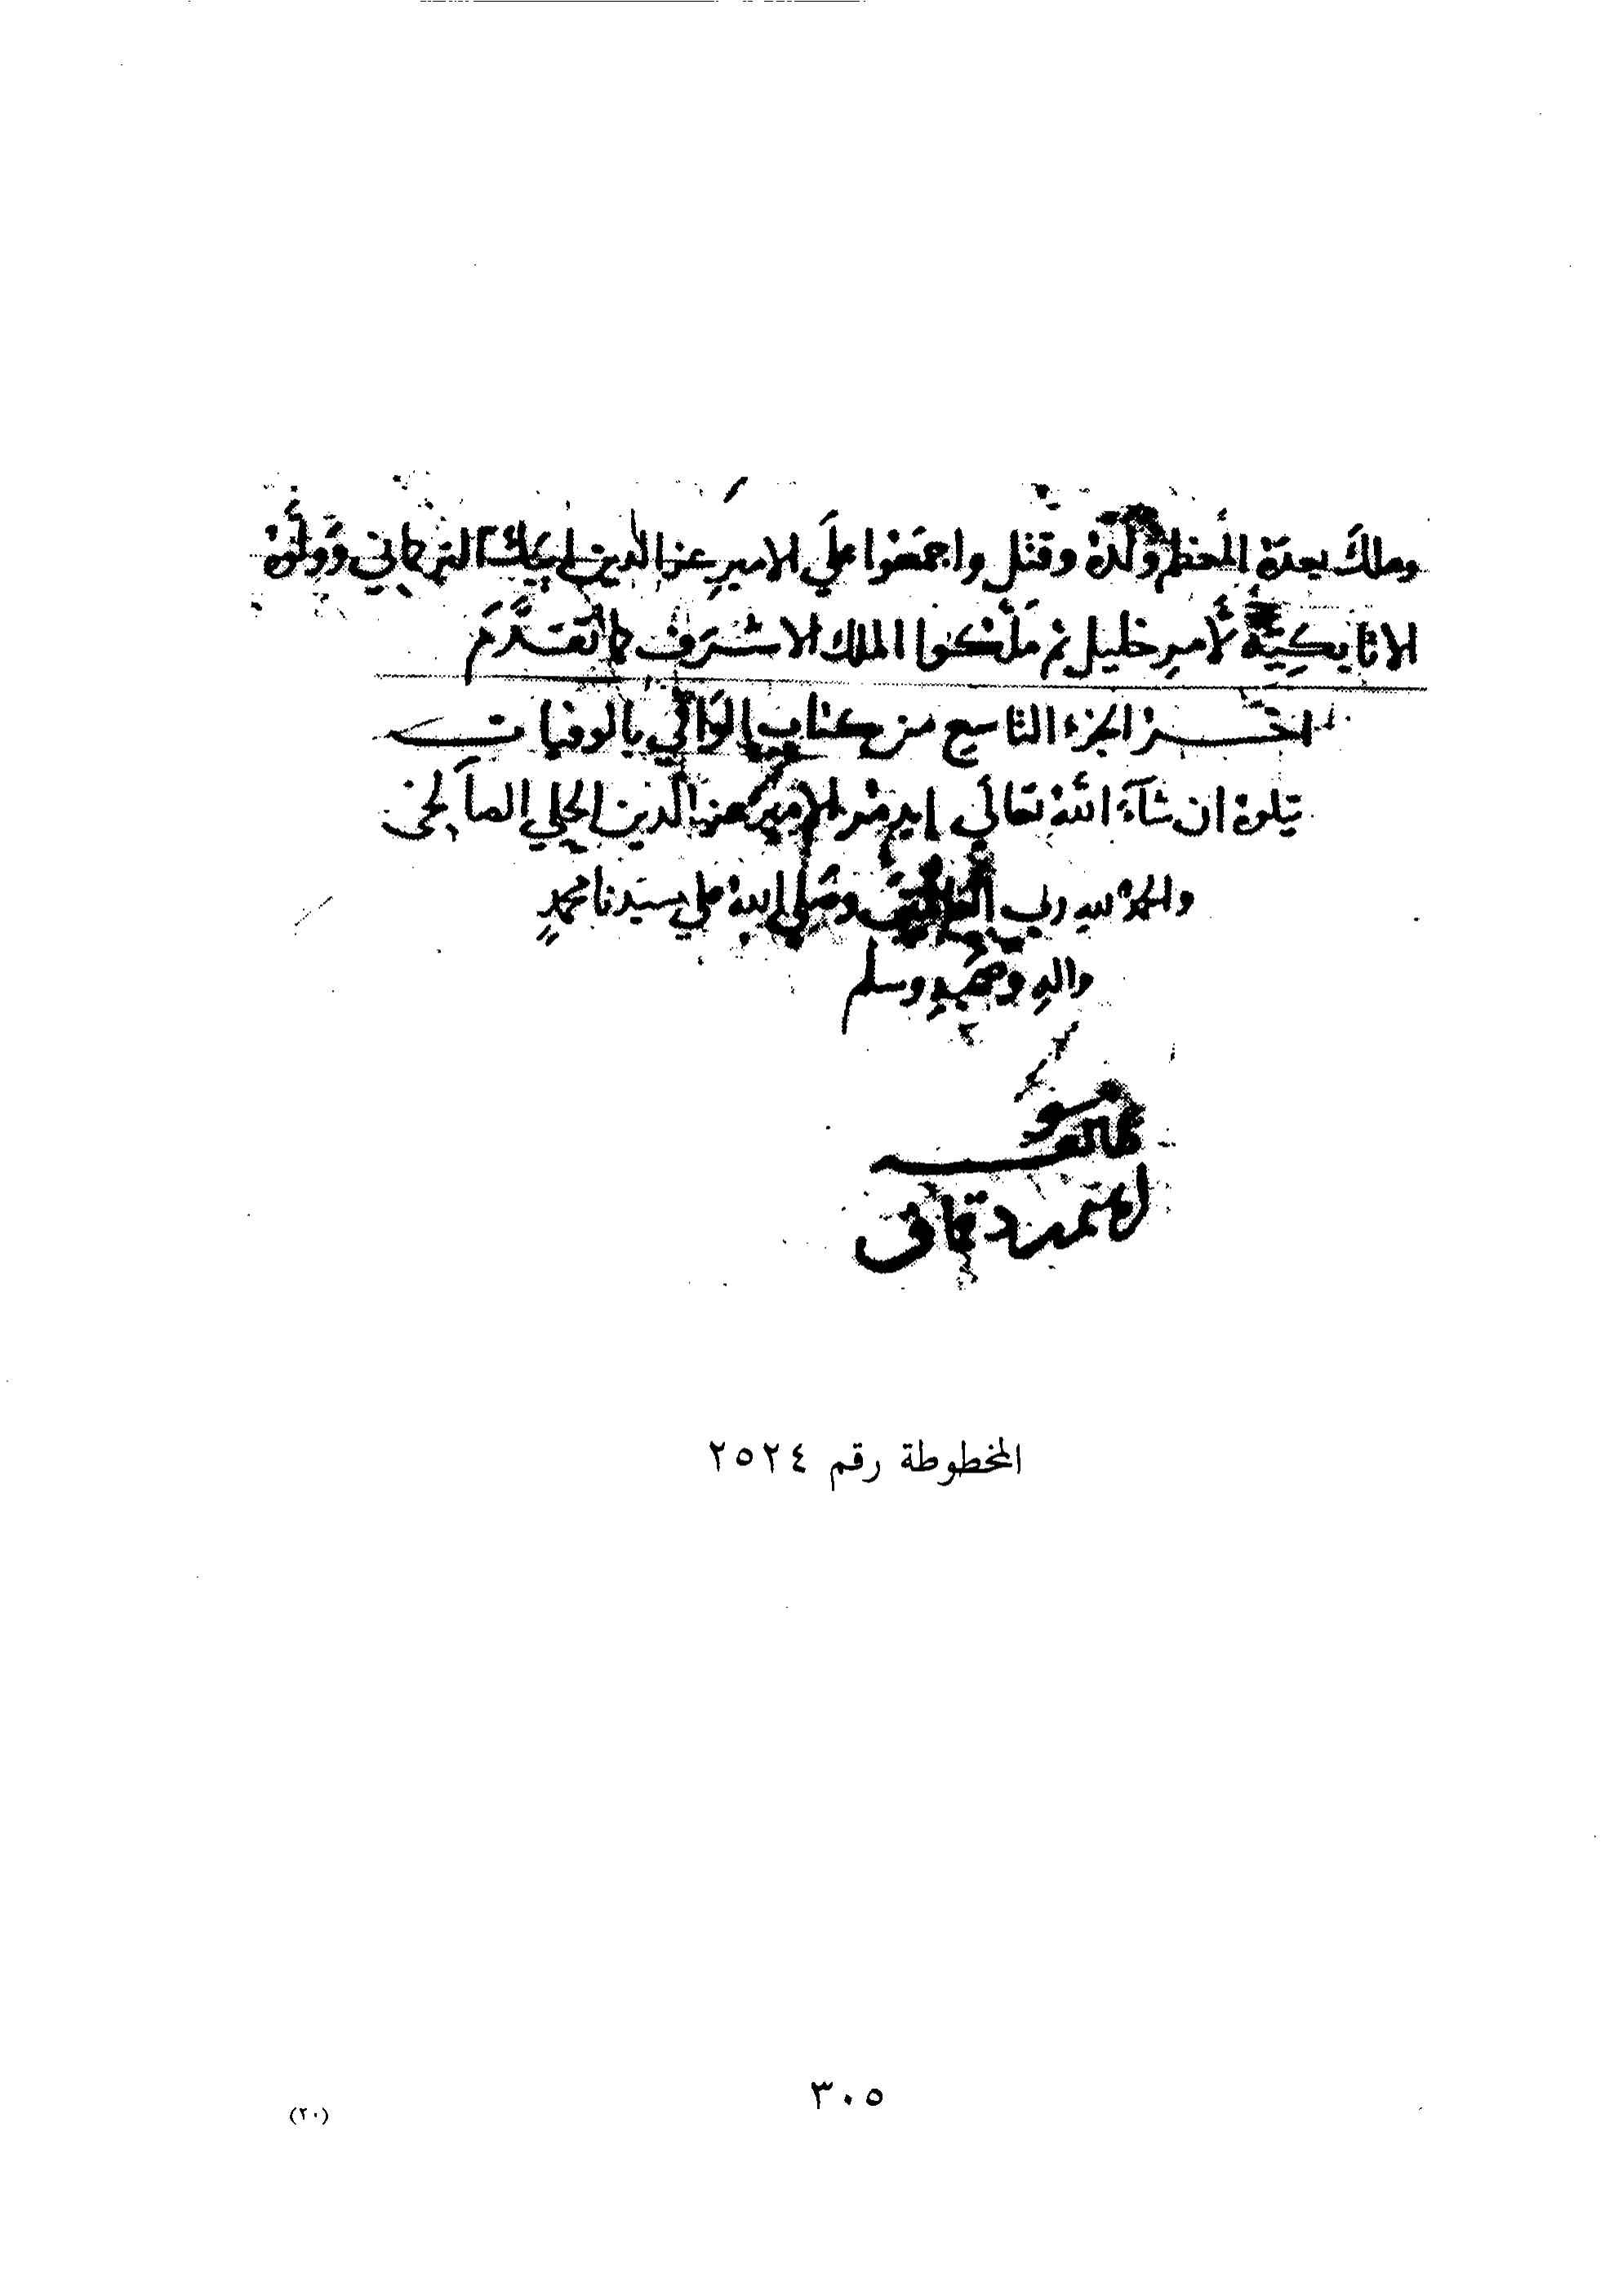 وملك بعدهُ المعظم ولدهُ وقتل واجمعوا على الامير عز الدين ايبك التركماني وولّوه
الاتابكية لامر خليل ثم ملّكوا الملك الاشرف كما تقدّم
اخر الجزء التاسع من كتاب الوافي بالوفيات
يتلوهُ ان شآء اللهُ تعالى ايدمر الامير عز الدين الحلي الصالحي
والحمدُ لله رب العالمين وصلى اللهُ على سيدنا محمدٍ
واله وصحبه وسلم
المخطوطة رقم ٢٥٢٤
٣٠٥
(٢٠)